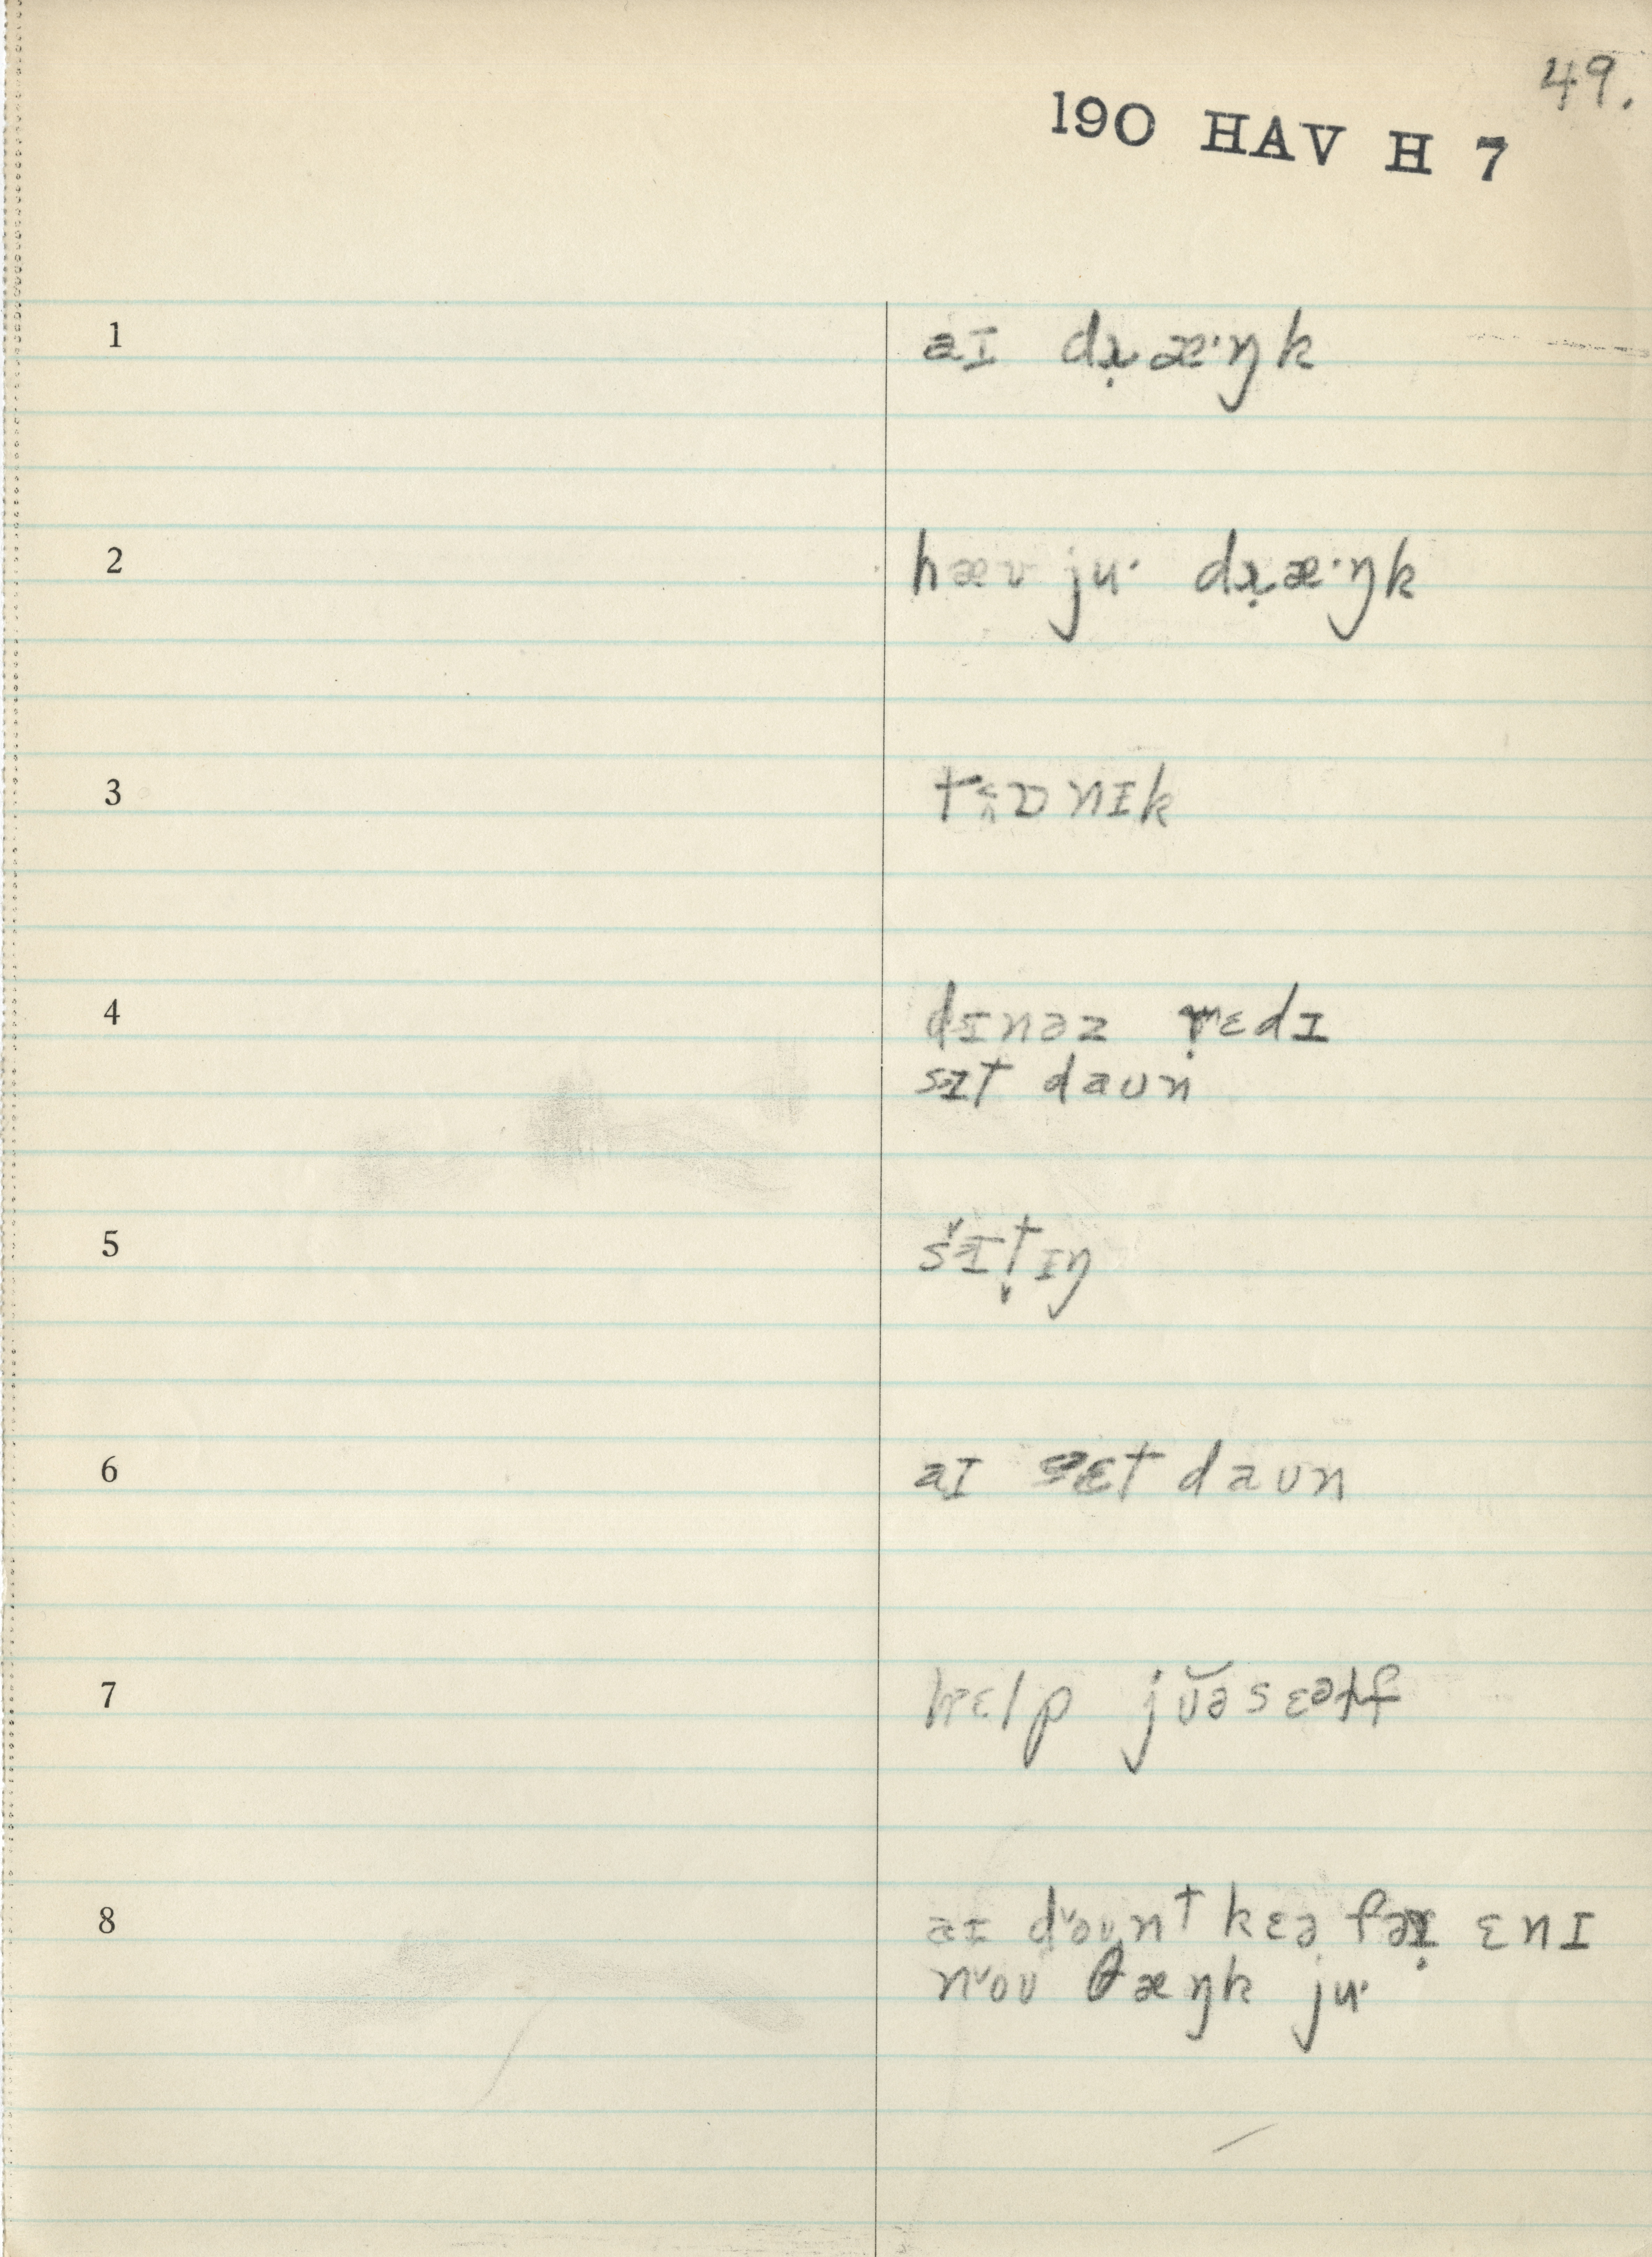 49.
190 HAV H 7
1 aɪ dɹ̣æˑŋk
2 hæv juˑ dɹ̣æˑŋk
3 tʌɒnɪk
4 dɪnəz ṛɛdɪ
sɪt daʊn
5 sɪt̬ɪŋ
6 aɪ sɛt daʊn
7 hɛlp jʊ̆əsɛəɫf
8 aɪ dˇəʊnt kɛə fəṛ ɛnɪ
nˇoʊ θæŋk juˑ